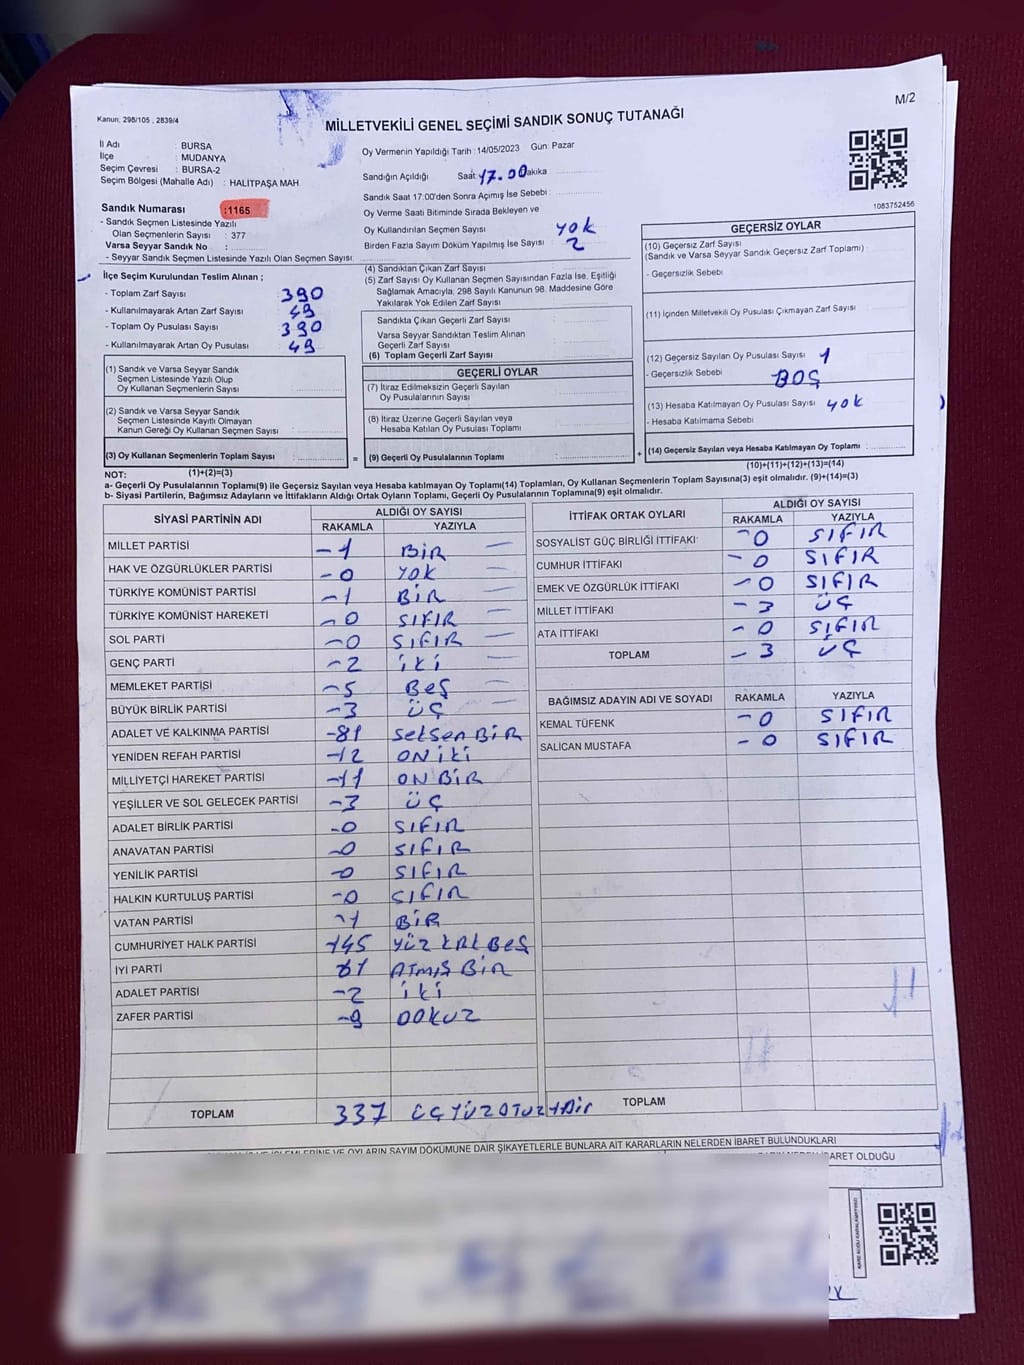 M/2
Kanun: 298/105 , 2839/4
MİLLETVEKİLİ GENEL SEÇİMİ SANDIK SONUÇ TUTANAĞI
İl Adı : BURSA
İlçe : MUDANYA
Seçim Çevresi : BURSA-2
Seçim Bölgesi (Mahalle Adı) : HALİTPAŞA MAH
Sandık Numarası :1165
- Sandık Seçmen Listesinde Yazılı
Olan Seçmenlerin Sayısı : 377
Varsa Seyyar Sandık No :
- Seyyar Sandık Seçmen Listesinde Yazılı Olan Seçmen Sayısı
Oy Vermenin Yapıldığı Tarih : 14/05/2023 Gün: Pazar
Sandığın Açıldığı Saat 17.00 Dakika
Sandık Saat 17:00'den Sonra Açımış İse Sebebi :
Oy Verme Saati Bitiminde Sırada Bekleyen ve
Oy Kullandırılan Seçmen Sayısı YOK
Birden Fazla Sayım Döküm Yapılmış İse Sayısı 2
1083752456
İlçe Seçim Kurulundan Teslim Alınan ;
- Toplam Zarf Sayısı 390
- Kullanılmayarak Artan Zarf Sayısı 49
- Toplam Oy Pusulası Sayısı 390
- Kullanılmayarak Artan Oy Pusulası 49
(1) Sandık ve Varsa Seyyar Sandık
Seçmen Listesinde Yazılı Olup
Oy Kullanan Seçmenlerin Sayısı
(2) Sandık ve Varsa Seyyar Sandık
Seçmen Listesinde Kayıtlı Olmayan
Kanun Gereği Oy Kullanan Seçmen Sayısı
(3) Oy Kullanan Seçmenlerin Toplam Sayısı
(1)+(2)=(3)
(4) Sandıktan Çıkan Zarf Sayısı
(5) Zarf Sayısı Oy Kullanan Seçmen Sayısından Fazla İse, Eşitliği
Sağlamak Amacıyla, 298 Sayılı Kanunun 98. Maddesine Göre
Yakılarak Yok Edilen Zarf Sayısı
Sandıkta Çıkan Geçerli Zarf Sayısı
Varsa Seyyar Sandıktan Teslim Alınan
Geçerli Zarf Sayısı
(6) Toplam Geçerli Zarf Sayısı
GEÇERLİ OYLAR
(7) İtiraz Edilmeksizin Geçerli Sayılan
Oy Pusulalarının Sayısı
(8) İtiraz Üzerine Geçerli Sayılan veya
Hesaba Katılan Oy Pusulası Toplamı
= (9) Geçerli Oy Pusulalarının Toplamı
GEÇERSİZ OYLAR
(10) Geçersiz Zarf Sayısı
(Sandık ve Varsa Seyyar Sandık Geçersiz Zarf Toplamı)
- Geçersizlik Sebebi
(11) İçinden Milletvekili Oy Pusulası Çıkmayan Zarf Sayısı
(12) Geçersiz Sayılan Oy Pusulası Sayısı 1
- Geçersizlik Sebebi BOŞ
(13) Hesaba Katılmayan Oy Pusulası Sayısı YOK
- Hesaba Katılmama Sebebi
+ (14) Geçersiz Sayılan veya Hesaba Katılmayan Oy Toplamı
(10)+(11)+(12)+(13)=(14)
NOT:
a- Geçerli Oy Pusulalarının Toplamı(9) ile Geçersiz Sayılan veya Hesaba katılmayan Oy Toplamı(14) Toplamları, Oy Kullanan Seçmenlerin Toplam Sayısına(3) eşit olmalıdır. (9)+(14)=(3)
b- Siyasi Partilerin, Bağımsız Adayların ve İttifakların Aldığı Ortak Oyların Toplamı, Geçerli Oy Pusulalarının Toplamına(9) eşit olmalıdır.
SİYASİ PARTİNİN ADI ALDIĞI OY SAYISI
RAKAMLA YAZIYLA
MİLLET PARTİSİ -1 BİR
HAK VE ÖZGÜRLÜKLER PARTİSİ -0 YOK
TÜRKİYE KOMÜNİST PARTİSİ -1 BİR
TÜRKİYE KOMÜNİST HAREKETİ -0 SIFIR
SOL PARTİ -0 SIFIR
GENÇ PARTİ -2 İKİ
MEMLEKET PARTİSİ -5 BEŞ
BÜYÜK BİRLİK PARTİSİ -3 ÜÇ
ADALET VE KALKINMA PARTİSİ -81 SEKSEN BİR
YENİDEN REFAH PARTİSİ -12 ON İKİ
MİLLİYETÇİ HAREKET PARTİSİ -11 ON BİR
YEŞİLLER VE SOL GELECEK PARTİSİ -3 ÜÇ
ADALET BİRLİK PARTİSİ -0 SIFIR
ANAVATAN PARTİSİ -0 SIFIR
YENİLİK PARTİSİ -0 SIFIR
HALKIN KURTULUŞ PARTİSİ -0 SIFIR
VATAN PARTİSİ -1 BİR
CUMHURİYET HALK PARTİSİ -145 YÜZ KRK BEŞ
İYİ PARTİ 61 ATMIŞ BİR
ADALET PARTİSİ -2 İKİ
ZAFER PARTİSİ -9 DOKUZ
TOPLAM 337
İTTİFAK ORTAK OYLARI ALDIĞI OY SAYISI
RAKAMLA YAZIYLA
SOSYALİST GÜÇ BİRLİĞİ İTTİFAKI -0 SIFIR
CUMHUR İTTİFAKI -0 SIFIR
EMEK VE ÖZGÜRLÜK İTTİFAKI -0 SIFIR
MİLLET İTTİFAKI -3 ÜÇ
ATA İTTİFAKI -0 SIFIR
TOPLAM -3 ÜÇ
BAĞIMSIZ ADAYIN ADI VE SOYADI RAKAMLA YAZIYLA
KEMAL TÜFENK -0 SIFIR
SALİCAN MUSTAFA -0 SIFIR
TOPLAM
OYLARIN SAYIM DÖKÜMÜNE DAİR ŞİKAYETLERLE BUNLARA AİT KARARLARIN NELERDEN İBARET BULUNDUKLARI
İBARET OLDUĞU